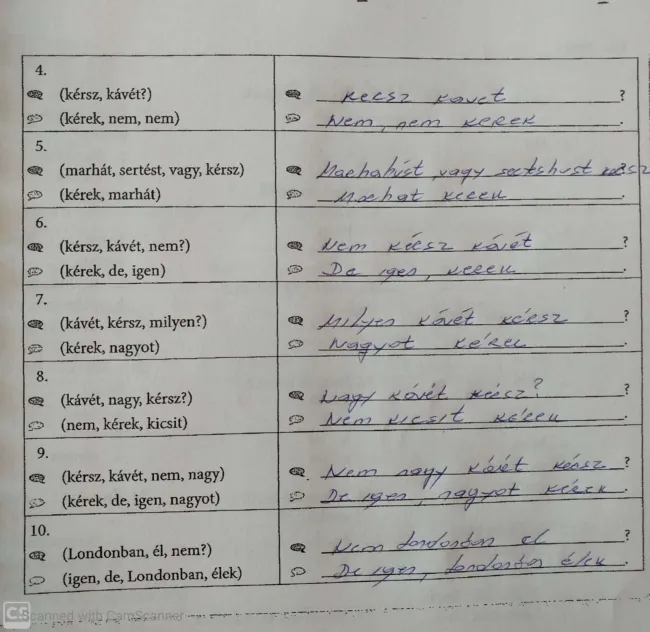 4.
(kérsz, kávét?) Kérsz kávét ?
(kérek, nem, nem) Nem, nem kérek .
5.
(marhát, sertést, vagy, kérsz) Marhahúst, vagy kérsz
(kérek, marhát) Marhát kérek .
6.
(kérsz, kávét, nem?) Nem kérsz kávét ?
(kérek, de, igen) De igen, kérek .
7.
(kávét, kérsz, milyen?) Milyen kávét kérsz ?
(kérek, nagyot) Nagyot kérek .
8.
(kávét, nagy, kérsz?) Nagy kávét kérsz? ?
(nem, kérek, kicsit) Nem kicsit kérek .
9.
(kérsz, kávét, nem, nagy) Nem nagy kávét kérsz ?
(kérek, de, igen, nagyot) De igen, nagyot kérek .
10.
(Londonban, él, nem?) Nem londonban el ?
(igen, de, Londonban, élek) De igen, londonban élek .
CS Scanned with CamScanner